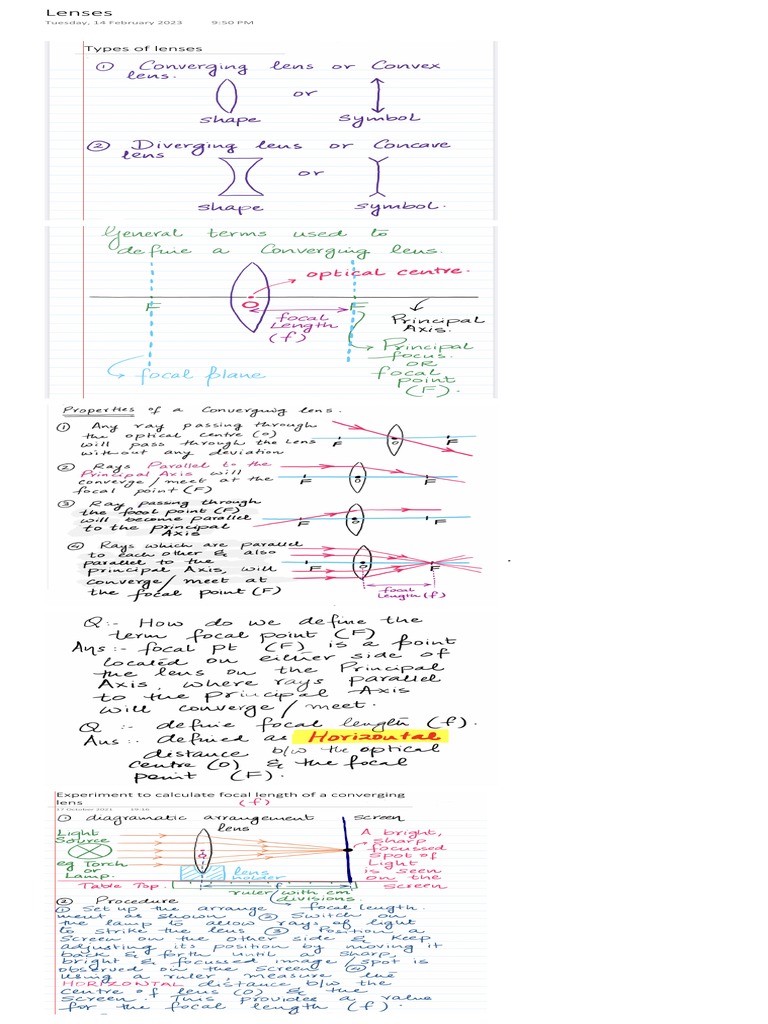 Lenses
Tuesday, 14 February 2023 9:50 PM
Types of lenses
① Converging lens or Convex
lens.
or
shape symbol
② Diverging lens or Concave
lens
or
shape symbol.
General terms used to
define a Converging lens.
optical centre.
F O F
focal
Length
(f)
Principal
Axis.
Principal
focus.
OR
focal
point
(F).
focal plane
Properties of a Converging lens.
① Any ray passing through
the optical centre (O)
will pass through the Lens
without any deviation
F O F
② Rays Parallel to the
Principal Axis will
converge/meet at the
focal point (F)
F O F
③ Ray passing through
the focal point (F)
will become parallel
to the principal
Axis
F O F
④ Rays which are parallel
to each other & also
parallel to the
principal Axis, will
converge/meet at
the focal point (F)
F O F
focal
length (f)
Q:- How do we define the
term focal point (F)
Ans:- focal pt (F) is a point
located on either side of
the lens on the Principal
Axis, where rays parallel
to the principal Axis
will converge/meet.
Q :- define focal length (f).
Ans:. defined as Horizontal
distance b/w the optical
centre (O) & the focal
point (F).
Experiment to calculate focal length of a converging
lens (f)
17 October 2021 19:16
① diagramatic arrangement
lens
screen
Light
Source
eg Torch
or
Lamp.
O
lens
holder
A bright,
sharp
focussed
spot of
Light
is seen
on the
screen
Table Top.
ruler/with cm
divisions.
focal length.
② Procedure
① Set up the arrange
ment as shown ② Switch on
the lamp to allow rays of light
to strike the lens ③ Position a
screen on the other side & keep
adjusting its position by moving it
back & forth until a sharp,
bright & focussed image spot is
observed on the screen ④
Using a ruler, measure the
HORIZONTAL distance b/w the
centre of lens (O) & the
screen. This provides a value
for the focal length (f).